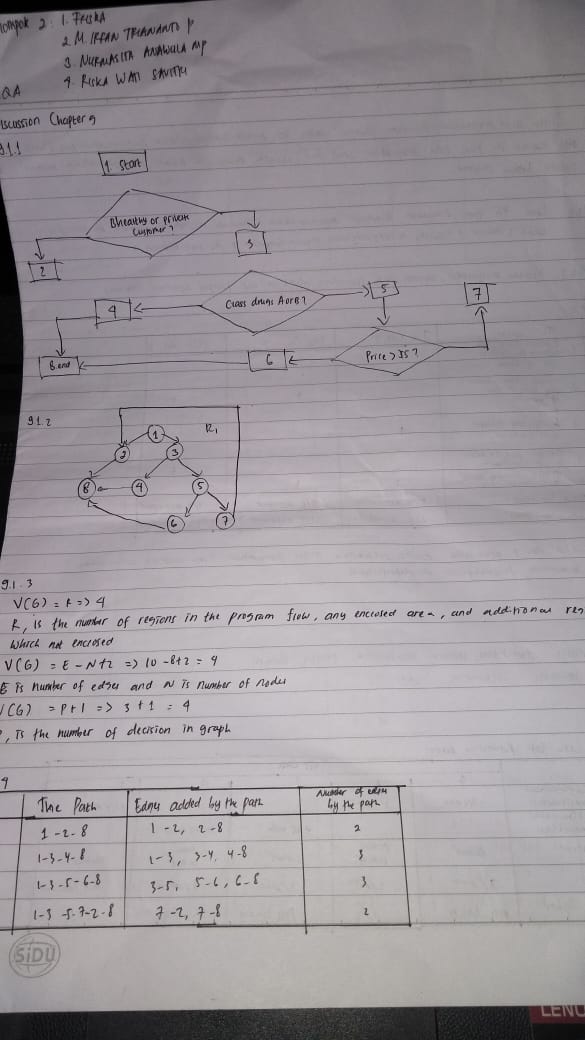 lompok 2 : 1. Friska
2. M. IRFAN TRIANANTO P
3. NURMASITA ANAWULA MP
4. RISKA WATI SAVITRI
QA
iscussion Chapter 9
9.1.1
1. Start
healthy or private
Customer?
2
3
Class drugs A or B?
4
5
7
8. end
6
Price > 35?
9.1.2
R1
1
2
3
8
4
5
6
7
9.1.3
V(G) = R => 4
R, is the number of regions in the program flow, any enclosed area, and additional reg
which not enclosed
V(G) = E - N + 2 => 10 - 8 + 2 = 4
E is number of edges and N is number of nodes
V(G) = P + 1 => 3 + 1 = 4
P, is the number of decision in graph
4
The Path Edges added by the path Number of edges by the path
1-2-8 1-2, 2-8 2
1-3-4-8 1-3, 3-4, 4-8 3
1-3-5-6-8 3-5, 5-6, 6-8 3
1-3-5-7-2-8 7-2, 7-8 2
SiDU
LENO